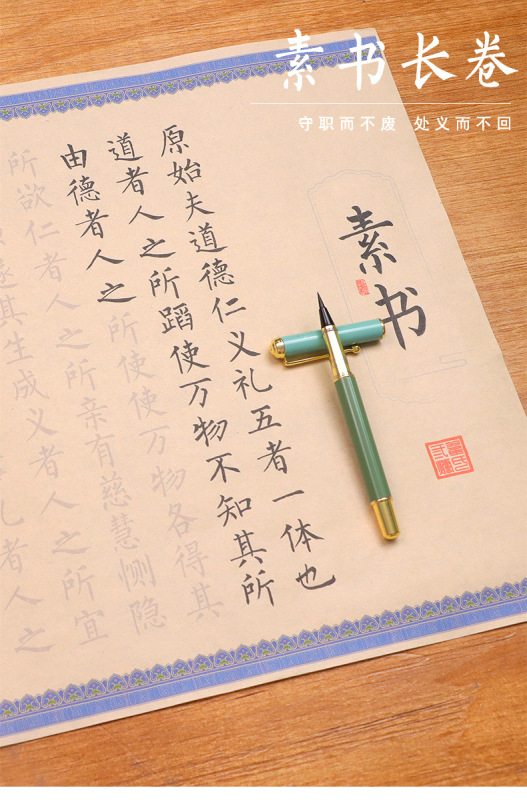 素书长卷
守职而不废 处义而不回
素书
原始夫道德仁义礼五者一体也
道者人之所蹈使万物不知其所
由德者人之所使使万物各得其
所欲仁者人之所亲有慈慧恻隐
遂其生成义者人之所宜
礼者人之